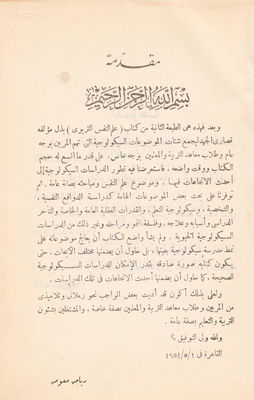 مقدمة
بسم الله الرحمن الرحيم
وبعد فهذه هى الطبعة الثانية من كتاب ( علم النفس التربوى ) بذل مؤلفه
قصارى الجهد ليجمع شتات الموضوعات السيكولوجية التى تهم المربين بوجه
عام وطلاب معاهد التربية والمعلمين بوجه خاص، على قدر ما اتسع له حجم
الكتاب ووقت واضعه، فاستعرضنا فيه تطور الدراسات السيكولوجية إلى
أحدث الاتجاهات فيها، وموضوع علم النفس ومباحثه بصفة عامة. ثم
توفرنا على بحث بعض الموضوعات الهامة كدراسة الدوافع النفسية،
والشخصية، وسيكولوجية التعلم، والقدرات العقلية العامة والخاصة والتأخر
الدراسى وأسبابه وعلاجه، وفلسفة النمو ومراحله وغير ذلك من الدراسات
السيكولوجية الحيوية. ولم يشأ واضع الكتاب أن يعالج موضوعاته على
نمط مدرسة سيكولوجية بعينها، بل حاول أن يضمنها مختلف الاتجاهات، حتى
يكون كتابه صورة صادقة بقدر الإمكان للدراسات السيكولوجية
الصحيحة، كما حاول أن يضمنها أحدث الاتجاهات فى تلك الدراسات.
ولعلى بذلك أكون قد أديت بعض الواجب نحو زملائى وتلاميذى
من المربين وطلاب معاهد التربية والمعلمين بصفة خاصة، والمشتغلين بشئون
التربية والتعليم بصفة عامة.
والله ولى التوفيق؟
القاهرة فى ١٩٥٤/٥/١
رياض معوض